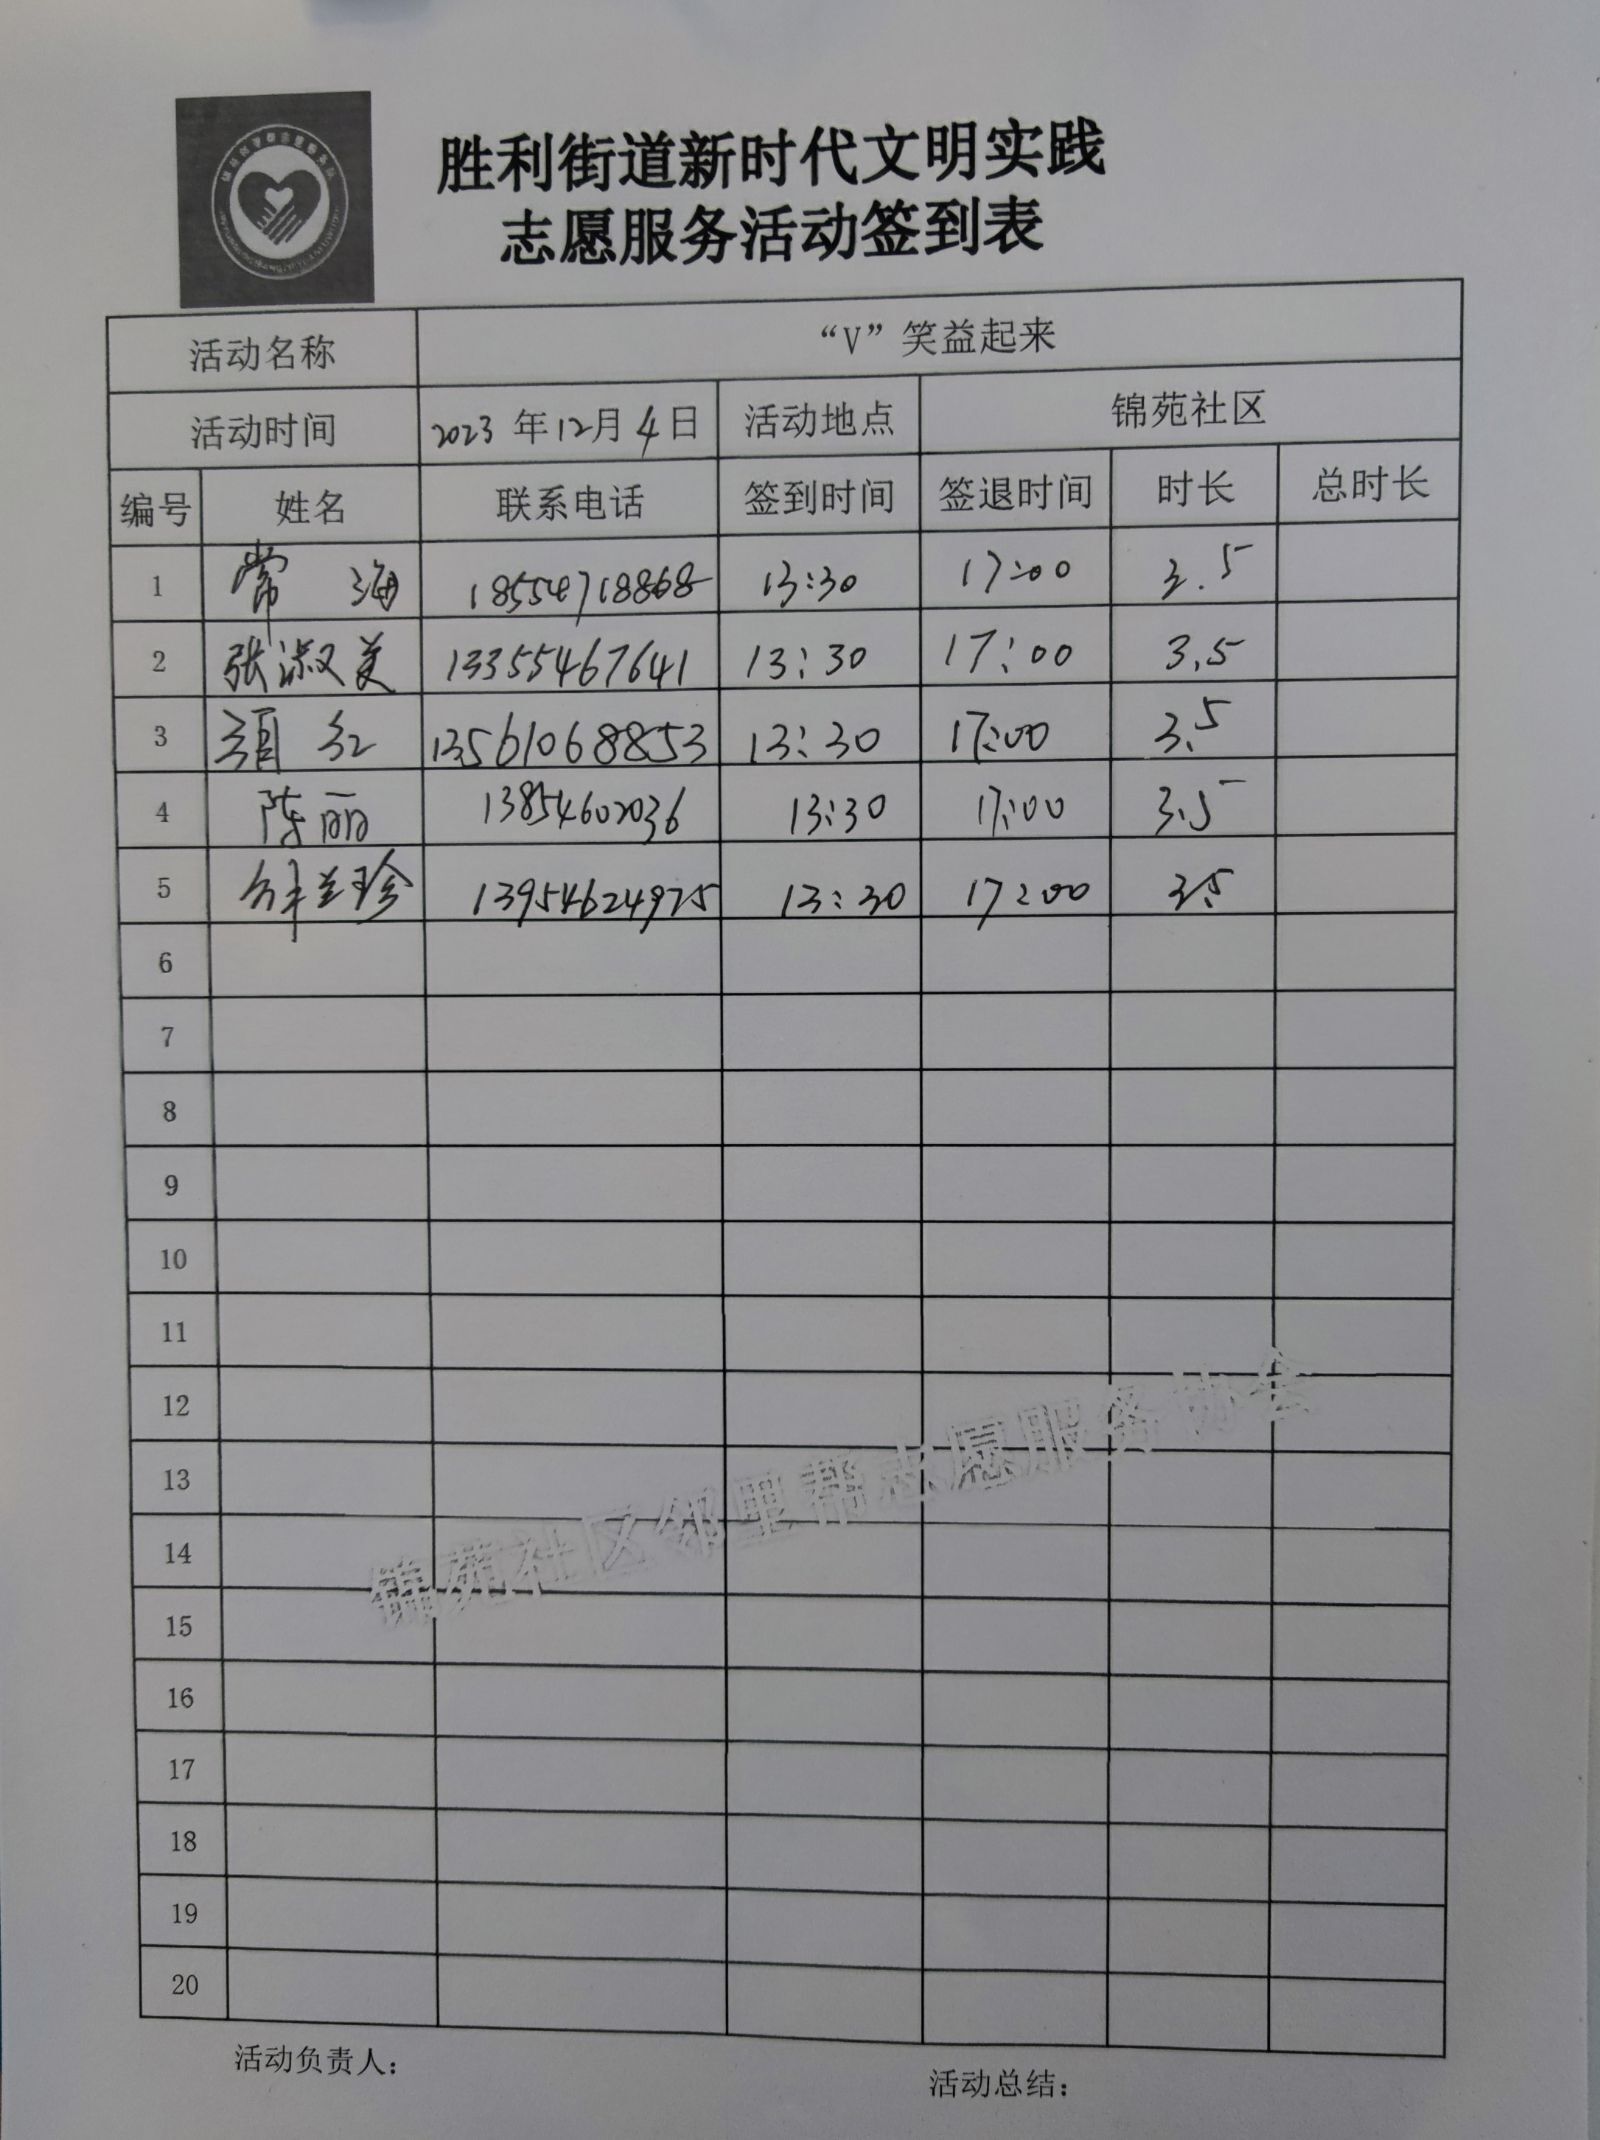 胜利街道新时代文明实践
志愿服务活动签到表
活动名称 “V”笑益起来
活动时间 2023 年12月4日 活动地点 锦苑社区
编号 姓名 联系电话 签到时间 签退时间 时长 总时长
1 常海 18554718868 13:30 17:00 3.5
2 张淑美 13355467641 13:30 17:00 3.5
3 红 13561068853 13:30 17:00 3.5
4 陈丽 13854602036 13:30 17:00 3.5
5 兰珍 13954624975 13:30 17:00 3.5
6
7
8
9
10
11
12
13
14
15
16
17
18
19
20
锦苑社区邻里帮志愿服务协会
活动负责人:
活动总结: